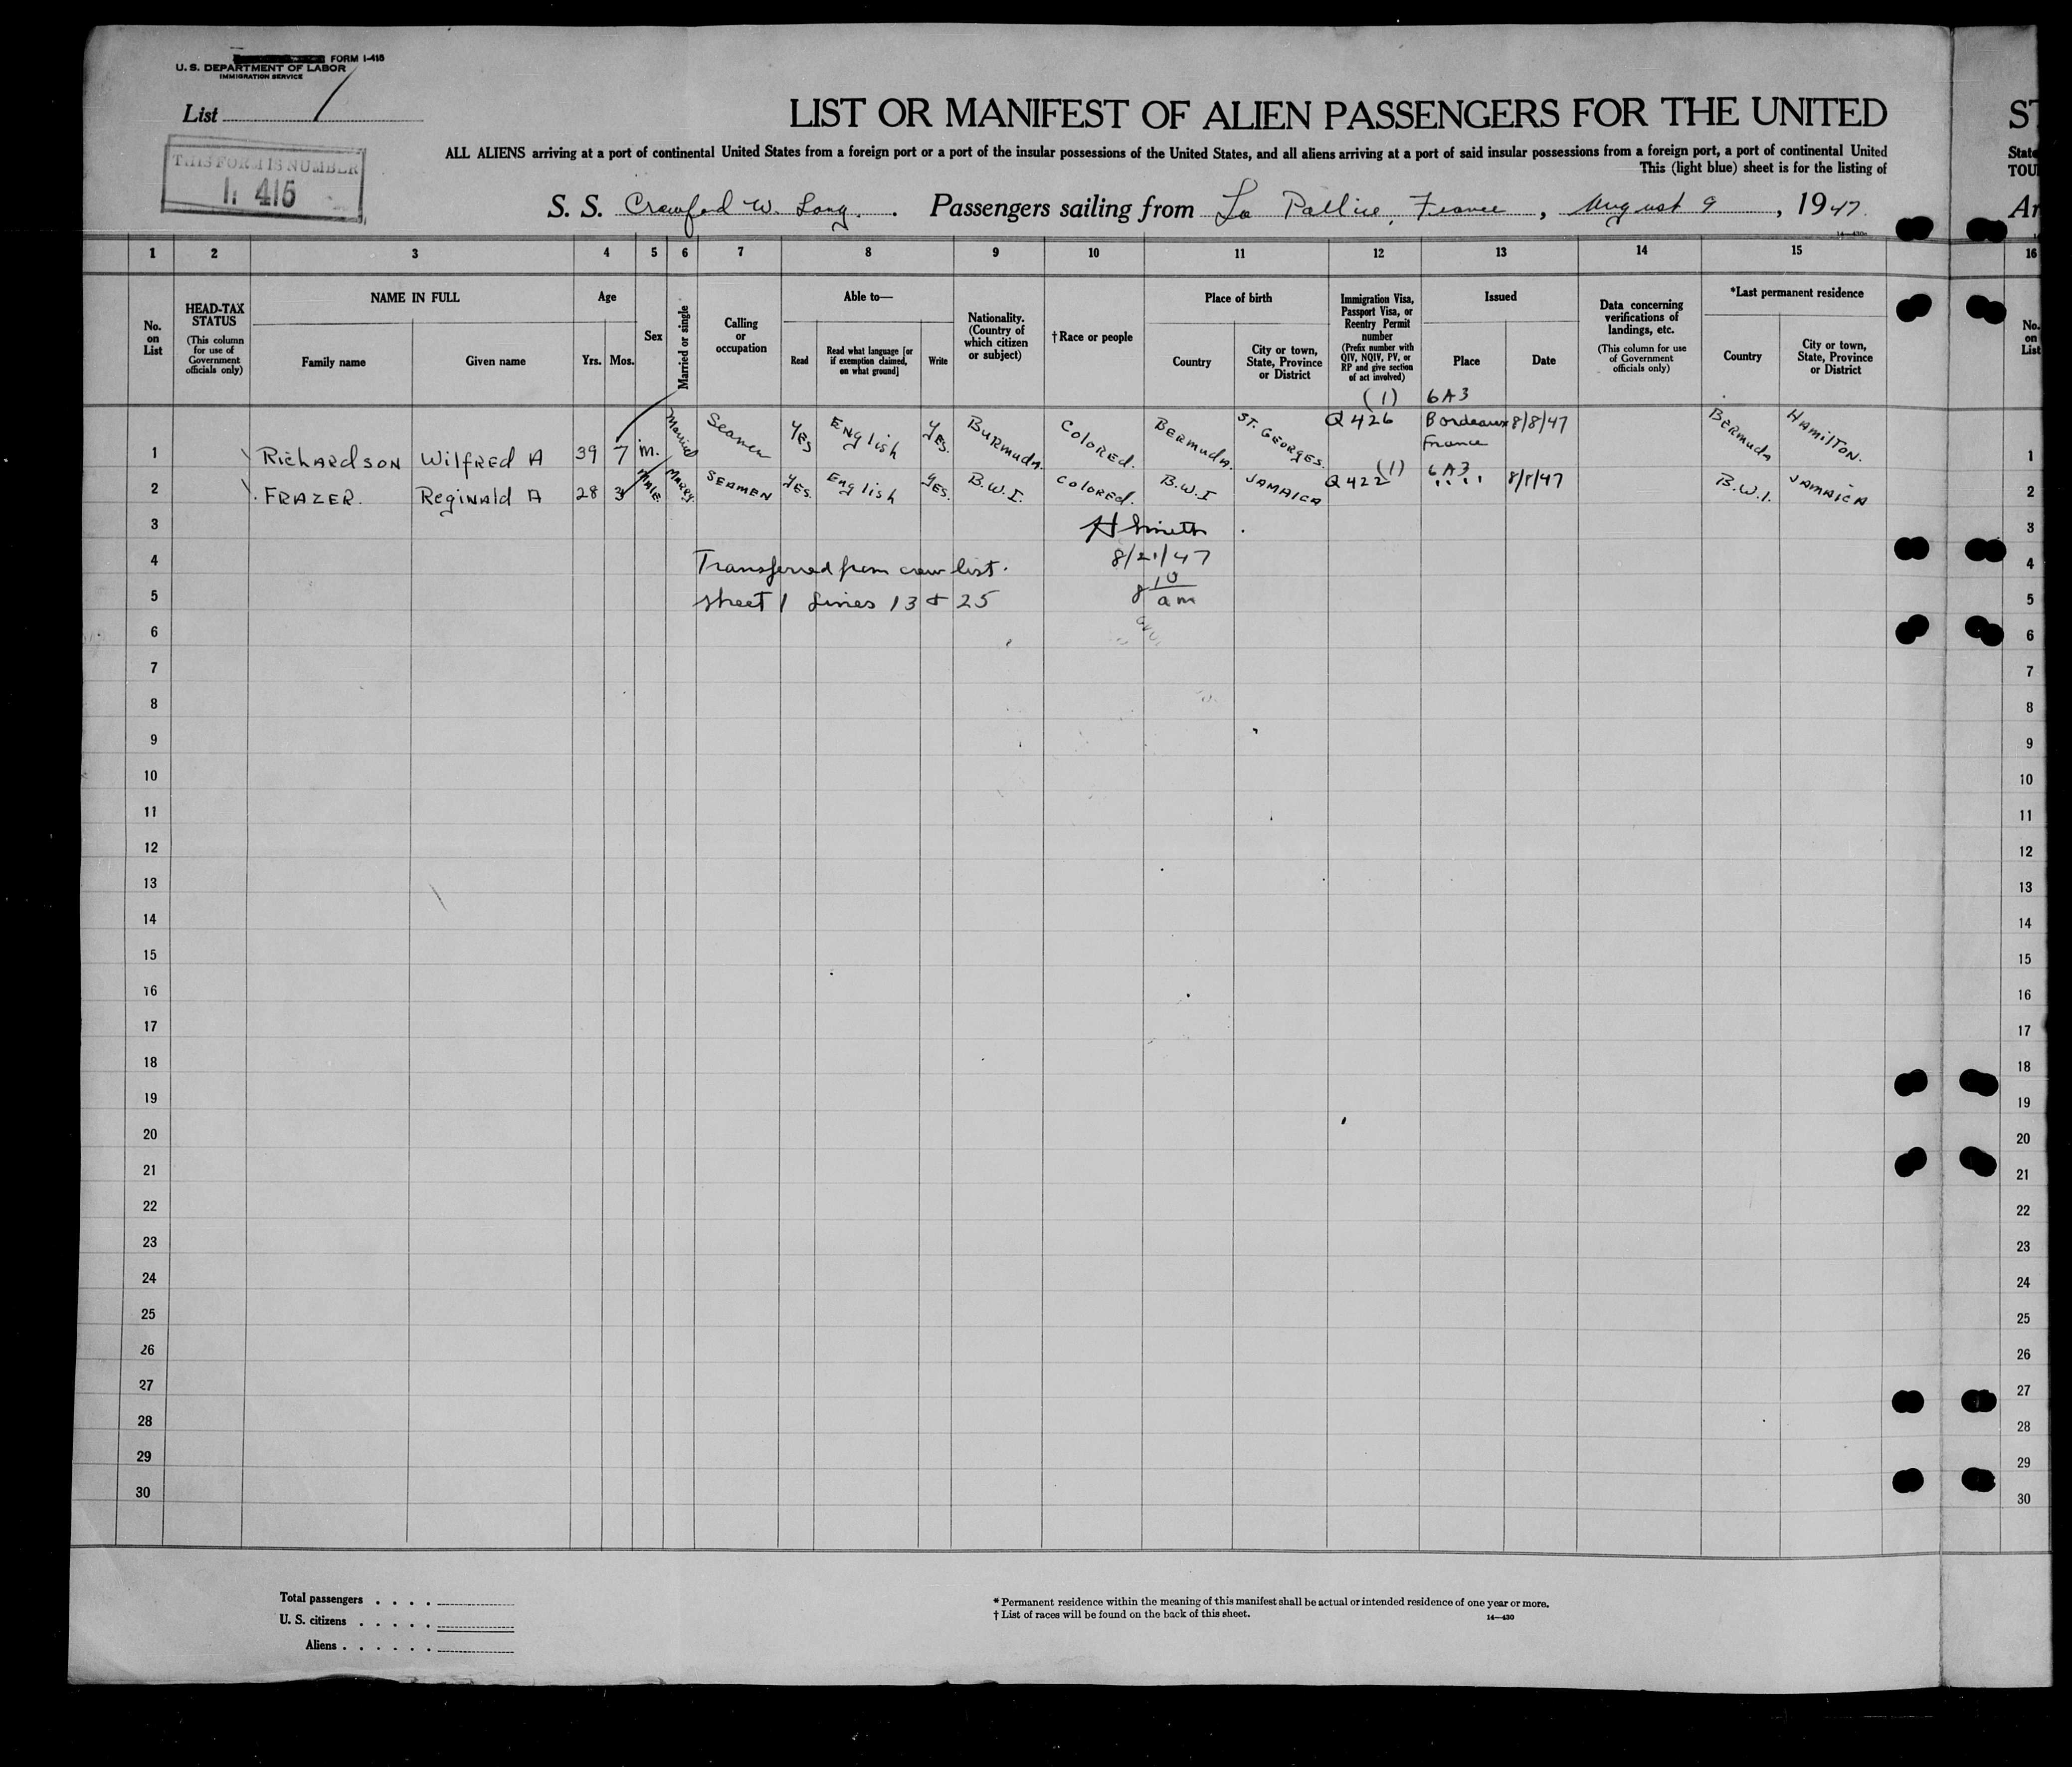 FORM I-415
U. S. DEPARTMENT OF LABOR
IMMIGRATION SERVICE
List 1
THIS FORM IS NUMBER
I. 415
LIST OR MANIFEST OF ALIEN PASSENGERS FOR THE UNITED
ST
ALL ALIENS arriving at a port of continental United States from a foreign port or a port of the insular possessions of the United States, and all aliens arriving at a port of said insular possessions from a foreign port, a port of continental United
State
This (light blue) sheet is for the listing of
TOU
S. S. Crawford W. Long. Passengers sailing from La Pallice, France, August 9, 1947.
Ar
1 2 3 4 5 6 7 8 9 10 11 12 13 14 15 16
No. on List
HEAD-TAX STATUS (This column for use of Government officials only)
NAME IN FULL
Family name Given name
Age
Yrs. Mos.
Sex
Married or single
Calling or occupation
Able to—
Read Read what language [or if exemption claimed, on what ground] Write
Nationality. (Country of which citizen or subject)
†Race or people
Place of birth
Country City or town, State, Province or District
Immigration Visa, Passport Visa, or Reentry Permit number (Prefix number with QIV, NQIV, PV, or RP and give section of act involved)
Issued
Place Date
Data concerning verifications of landings, etc. (This column for use of Government officials only)
*Last permanent residence
Country City or town, State, Province or District
No. on List
(1) 6A3
1 RichARdSON WilfRed A 39 7 m. Married Seamen Yes English Yes. BURmuda. Colored. Bermuda. ST. GEORGES. Q 426 Bordeaux France 8/8/47 Bermuda HAmilTON. 1
(1) 6A3
2 FRAZER. Reginald A 28 3 MALE. SEAMEN Yes. English Yes. B.W.I. Colored. B.W.I JAMAICA Q 422 " " 8/8/47 B.W.I. JAMAICA 2
3 H Smith 3
4 Transferred from crew list. 8/21/47 4
5 sheet 1 lines 13 & 25 8 10 am 5
6 6
7 7
8 8
9 9
10 10
11 11
12 12
13 13
14 14
15 15
16 16
17 17
18 18
19 19
20 20
21 21
22 22
23 23
24 24
25 25
26 26
27 27
28 28
29 29
30 30
Total passengers . . . .
U. S. citizens . . . . .
Aliens . . . . . .
* Permanent residence within the meaning of this manifest shall be actual or intended residence of one year or more.
† List of races will be found on the back of this sheet.
14—430